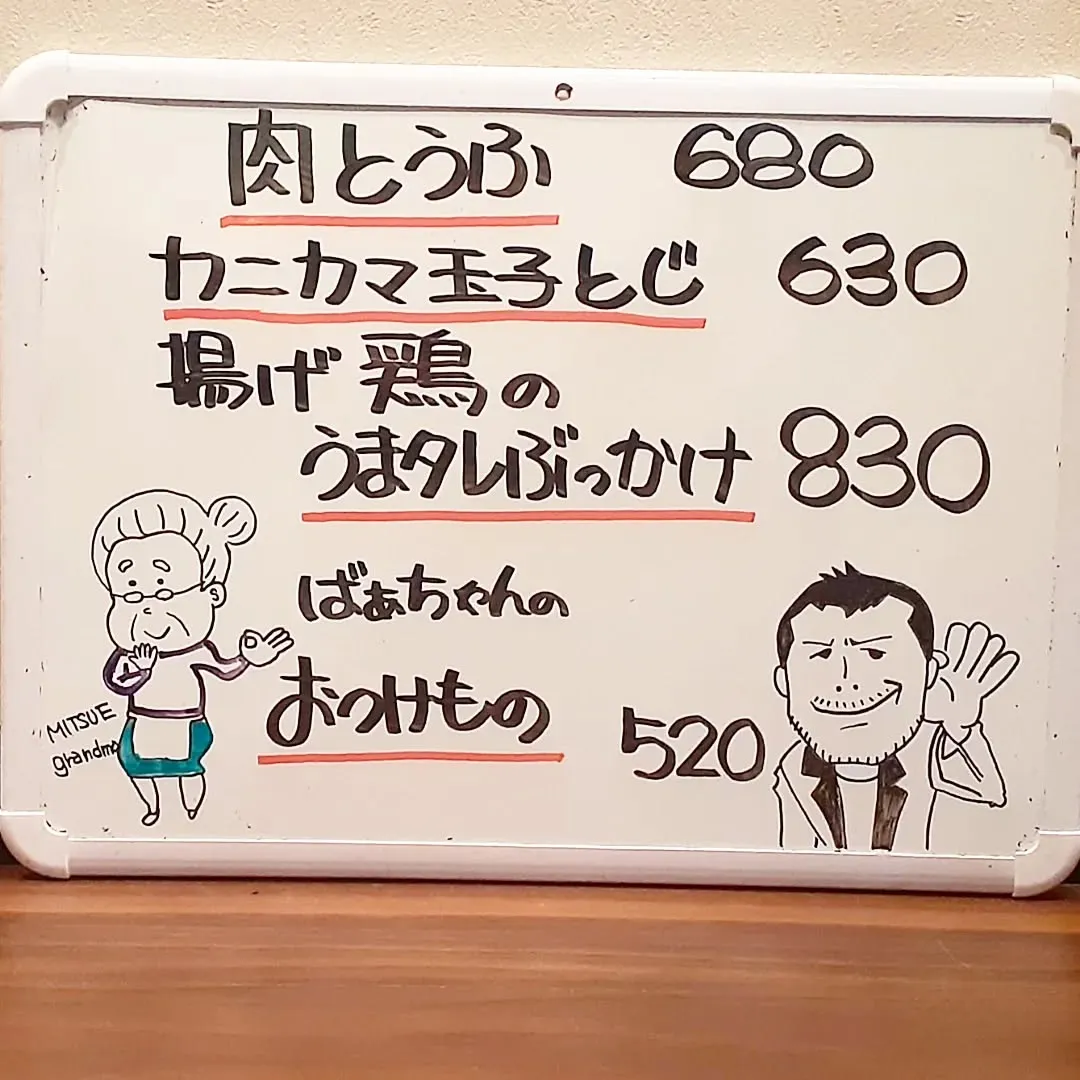 肉とうふ 680
カニカマ玉子とじ 630
揚げ鶏の
うまタレぶっかけ 830
ばぁちゃんの
おつけもの 520
MITSUE
grandma